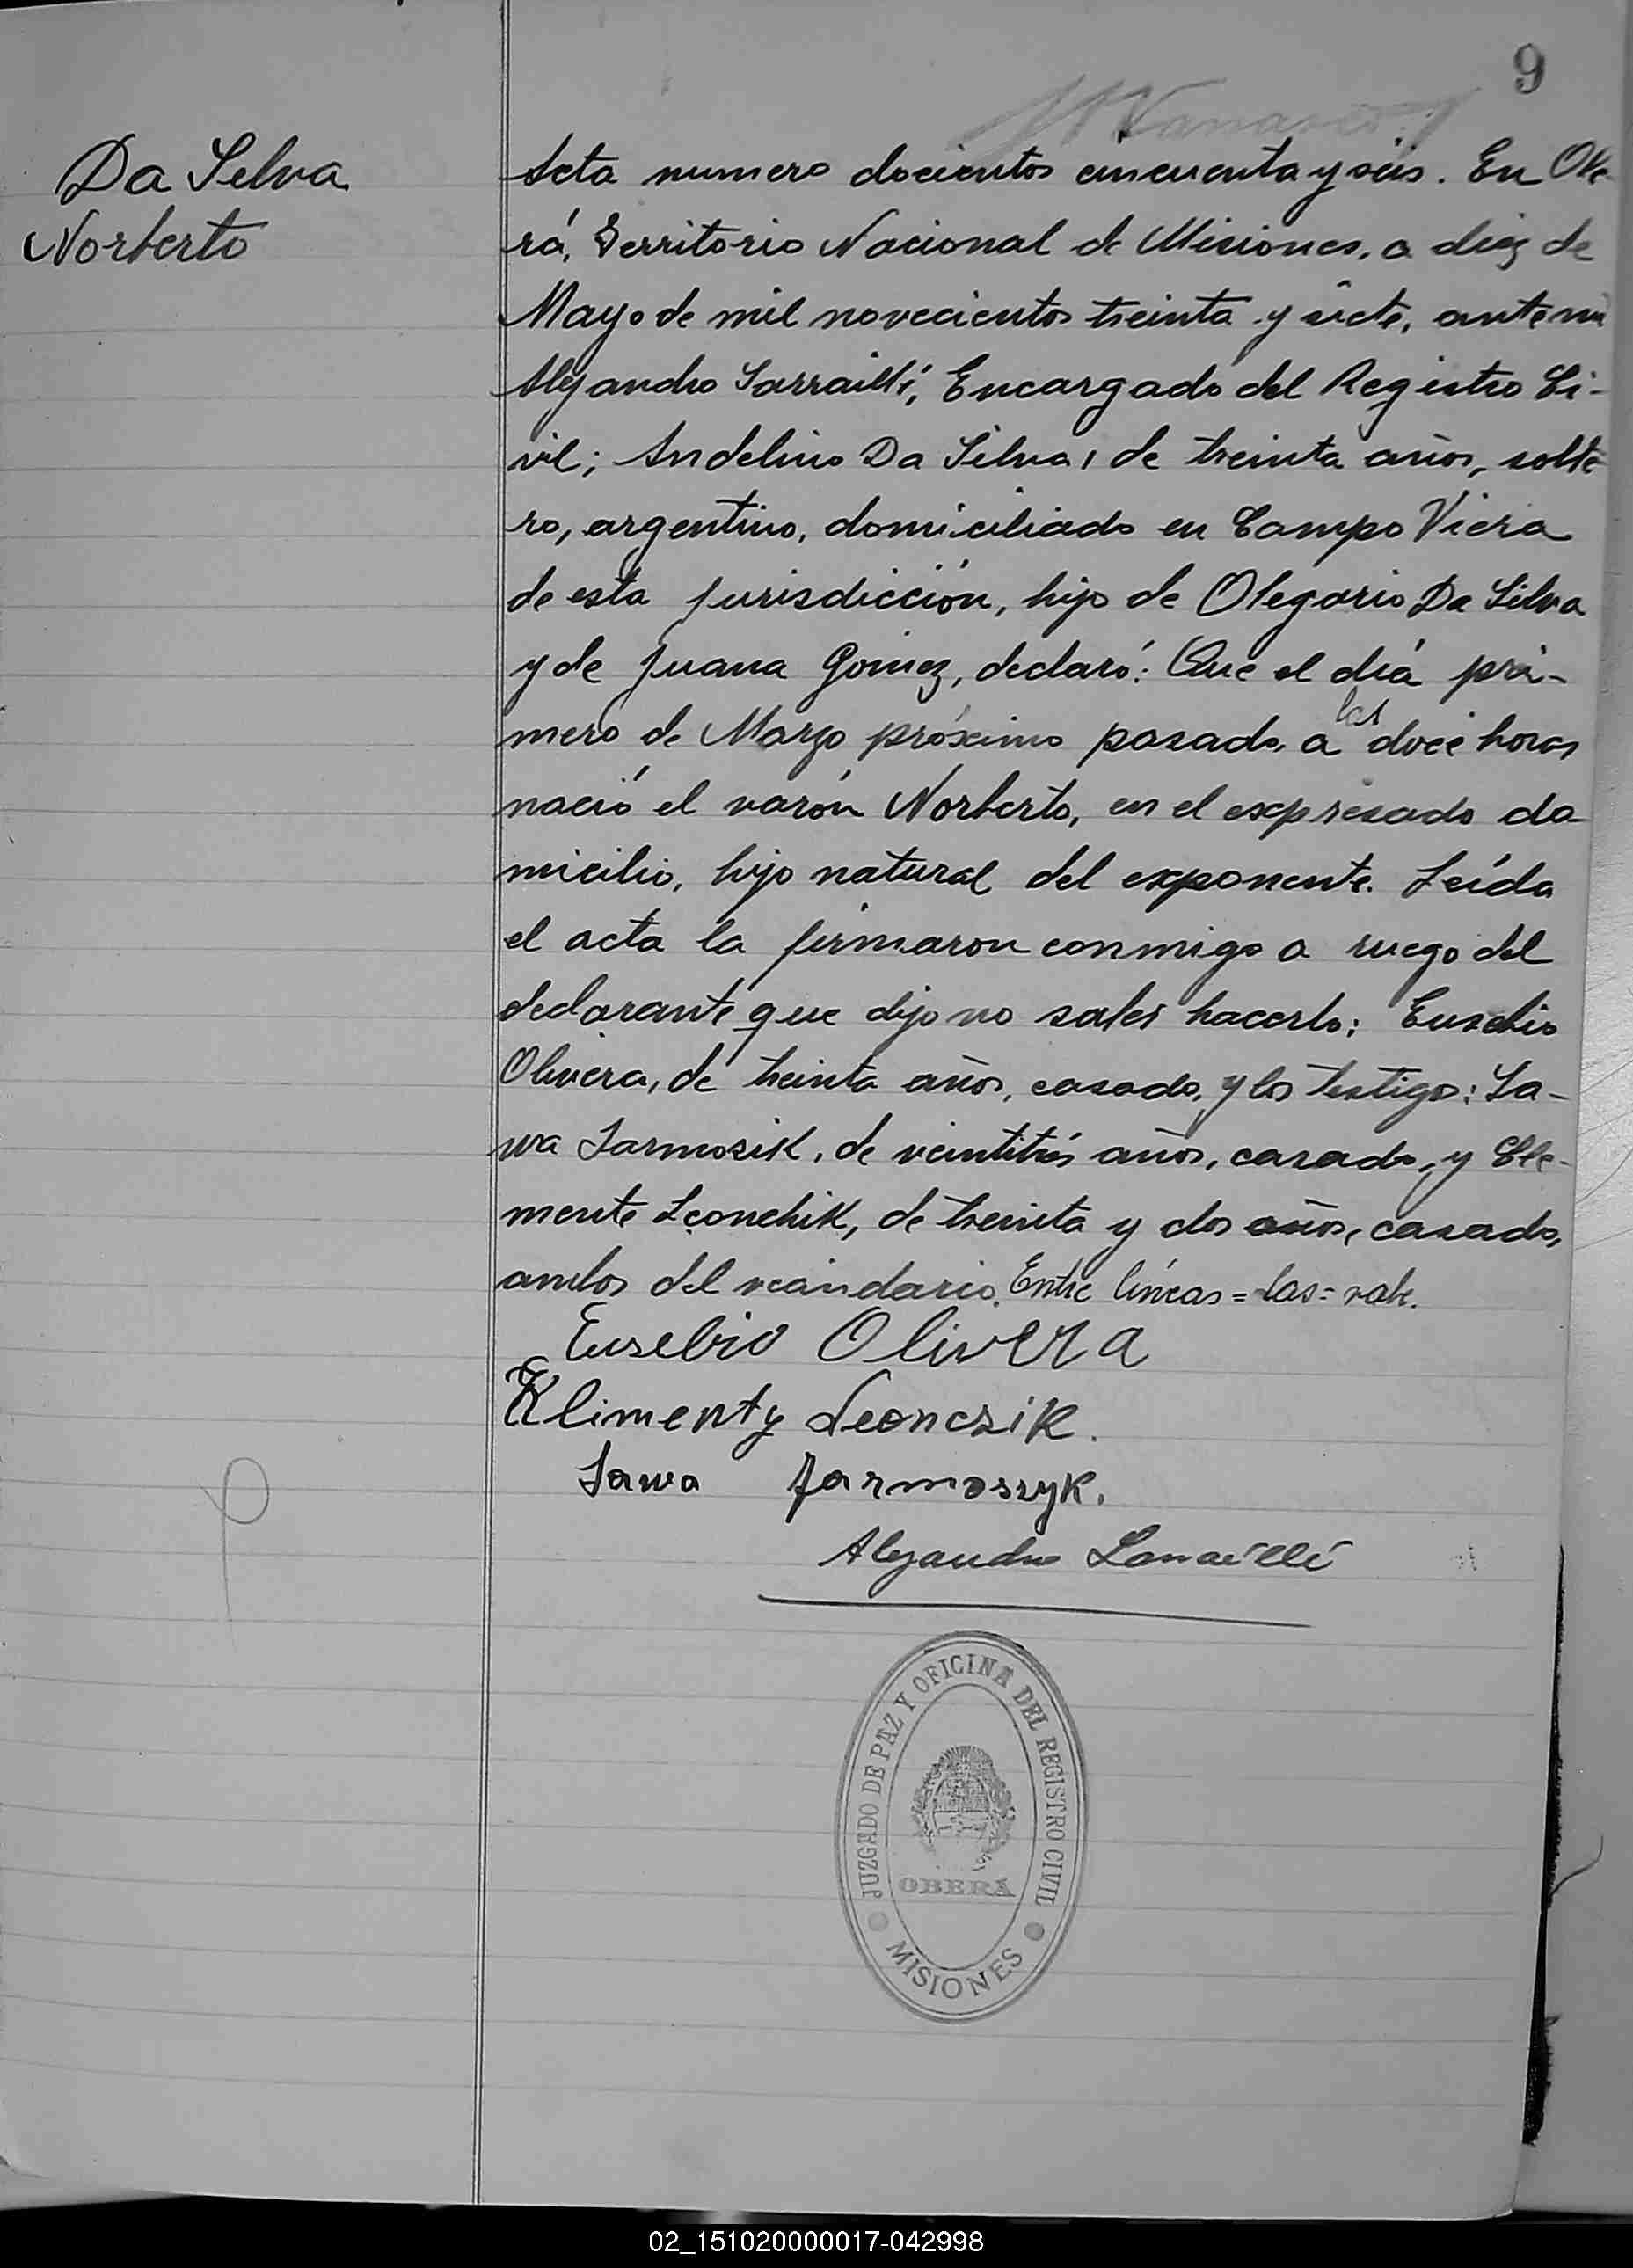 9
Da Silva
Norberto
Acta numero docientos cincuenta y seis. En Obe-
rá, Territorio Nacional de Misiones, a diez de
Mayo de mil novecientos treinta y siete, ante mi
Alejandro Larraillí, Encargado del Registro Ci-
vil; Andelino Da Silva, de treinta años, solte-
ro, argentino, domiciliado en Campo Viera
de esta jurisdicción, hijo de Olegario Da Silva
y de Juana Gomez, declaró: Que el día pri-
mero de Marzo próximo pasado, a las doce horas
nació el varón Norberto, en el expresado do-
micilio, hijo natural del exponente. Leída
el acta la firmaron conmigo a ruego del
declarante que dijo no saber hacerlo: Eusebio
Olivera, de treinta años, casado, y los testigos: Sa-
wa Jarmosik, de veintitrés años, casado, y Cle-
mente Leonchik, de treinta y dos años, casado,
ambos del vecindario. Entre líneas = las = vale.
Eusebio Olivera
Klimenty Leonczik.
Sawa Jarmoszyk.
Alejandro Larraillí
JUZGADO DE PAZ Y OFICINA DEL REGISTRO CIVIL
OBERÁ
MISIONES
02_151020000017-042998